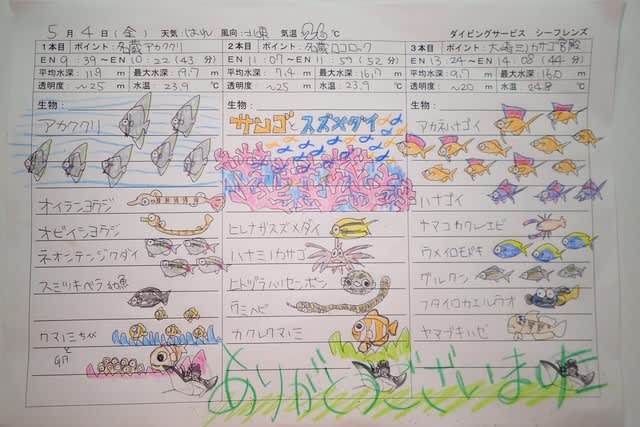 5月4日(金) 天気:はれ 風向:北東 気温26℃ ダイビングサービス シーフレンズ
1本目 ポイント:名蔵アカククリ
EN 9:39~EN 10:22(43分)
平均水深:11.9 m 最大水深:19.7 m
透明度:~25 m 水温:23.9 ℃
生物:
アカククリ
オイランヨウジ
オビイシヨウジ
ネオンテンジクダイ
スミツキベラ幼魚
クマノミちゃん
と
卵
2本目 ポイント:名蔵ロコロック
EN 11:07~EN 11:59(52分)
平均水深:7.4 m 最大水深:16.7 m
透明度:~25 m 水温:23.9 ℃
生物:
サンゴとスズメダイ
ヒレナガスズメダイ
ハナミノカサゴ
ヒトヅラハリセンボン
ウミヘビ
カクレクマノミ
3本目 ポイント:大崎ミノカサゴ宮殿
EN 13:24~EN 14:08(44分)
平均水深:9.7 m 最大水深:16.0 m
透明度:~20 m 水温:24.8 ℃
生物:
アカネハナゴイ
ハナゴイ
ナマコカクレエビ
ウメイロモドキ
グルクン
フタイロカエルウオ
ヤマブキハゼ
ありがとうございました